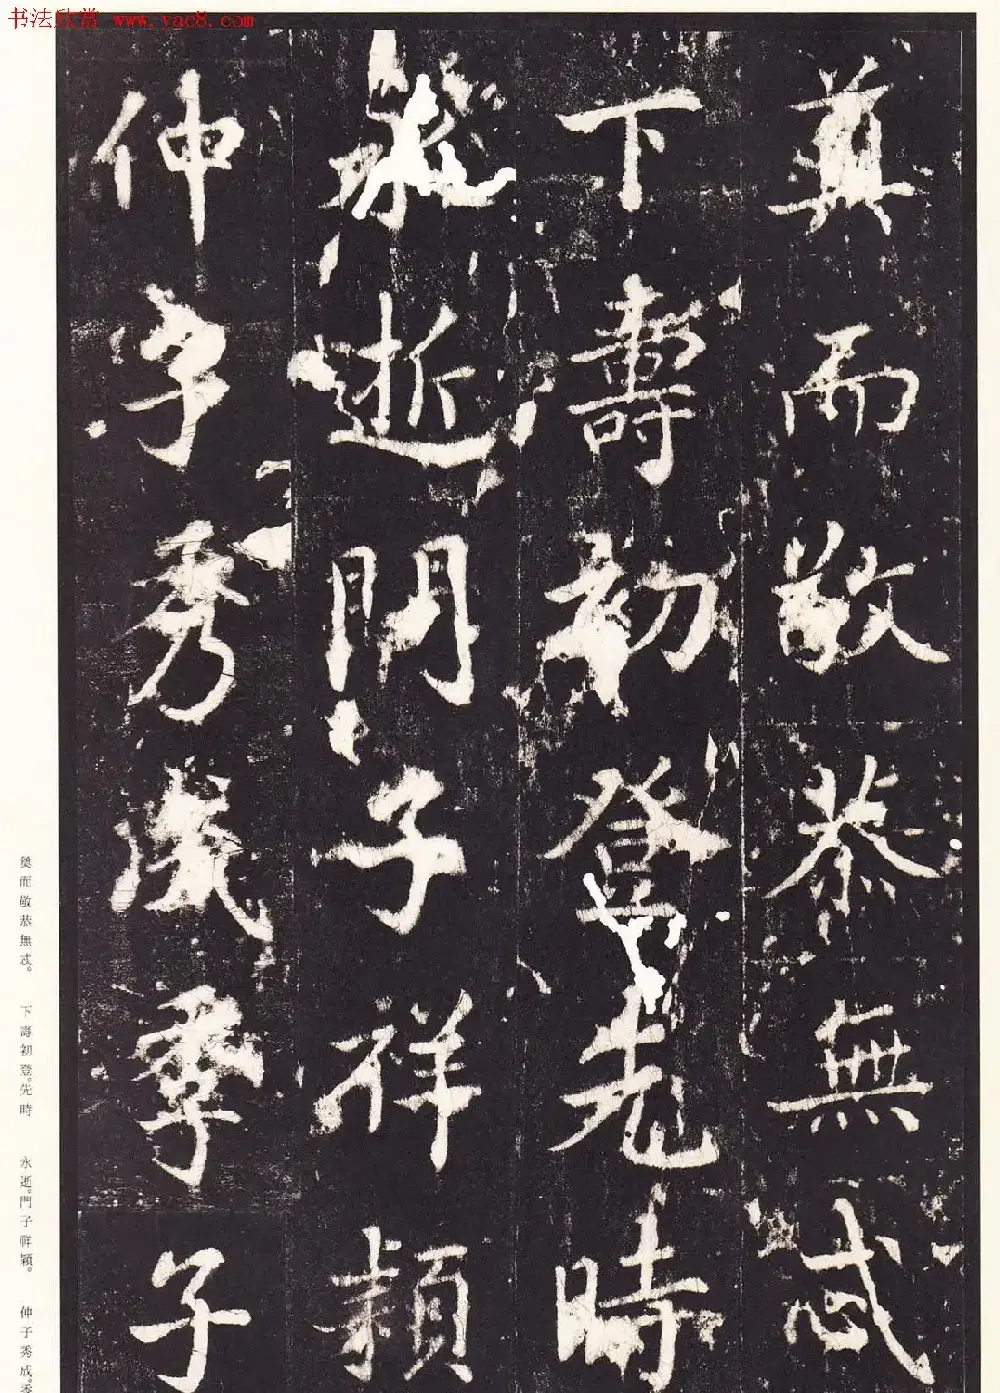 书法欣赏 www.yac8.com
奠而敬恭無忒
下壽初登先時
永逝門子祥穎
仲子秀成季子
奠而敬恭無忒。 下壽初登。先時 永逝。門子祥穎。 仲子秀成。季